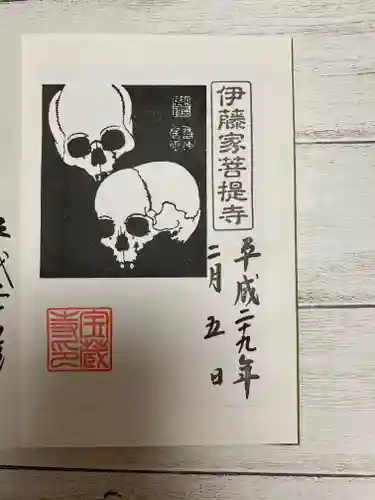 伊藤家菩提寺
平成二十九年
二月五日
宝蔵
寺印